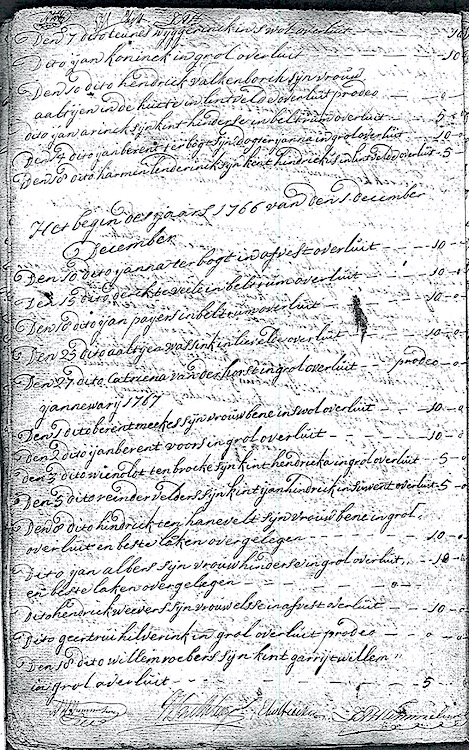 Den 7 dito teunes wiggerinck in swol overluit - - 10
Dito ijan koninck in grol overluit - 10 - 0
Den 10 dito hendrick valkenborch sijn vrouw
aaltijen in de hutte in lintvelde overluit prodeo - 0
dito ijan arinck sijn kint hinderse in beltrum overluit - 5 - 0
Den 14 dito ijanberent ter bogt sijn dogter ijanna in grol overluit - 10 - 0
Den 18 dito harmen lenderinck sijn kent hindrick in lintvelde overluit - 5 - 0
Het begin des ijaars 1766 van den 1 december
December
Den 10 dito ijanna ter bogt in afvest overluit - 10 - 0
Den 15 dito gerekte in beltrum overluit - 10 - 0
Den 18 dito ijan paijers in beltrum overluit - 10 - 0
Den 23 dito aaltijen wassink in lievelde overluit - 10 - 0
Den 27 dito Catriena van der horst in grol overluit - prodeo - 0
ijannewarij 1767
Den 1 dito berent meekes sijn vrouw bene in swol overluit - 10 - 0
Den 2 dito ijanberent voors in grol overluit - 10 - 0
den 3 dito wienolt ten broeke sijn kint hendricka in grol overluit - 5 - 0
Den 5 dito reinder velders sijn kint ijanhindrick in overluit - 5 - 0
Den 8 dito hindrick ten hanevelt sijn vrouw bene in grol
overluit en beste laken overgelegen - 10 - 0
Dito ijan albers sijn vrouw hinderse in grol overluit - 10 - 0
en beste laken overgelegen
Dito hendrick weevers sijn vrouw elsse in afvest overluit - 10 - 0
Dito geertrui hilverink in grol overluit prodeo - 0 - 0
Den 18 dito willem roebers sijn kint garrijt willem
in grol overluit - 5